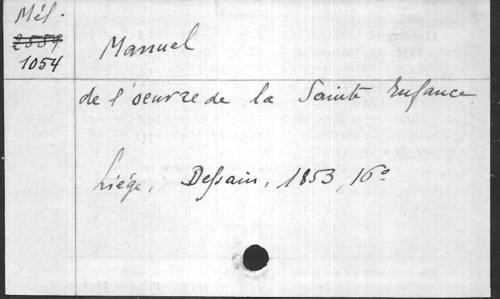 Mél.
2559
1054
Manuel
de l'oeuvre de la Sainte Enfance
Liége, Dessain, 1853, 16°